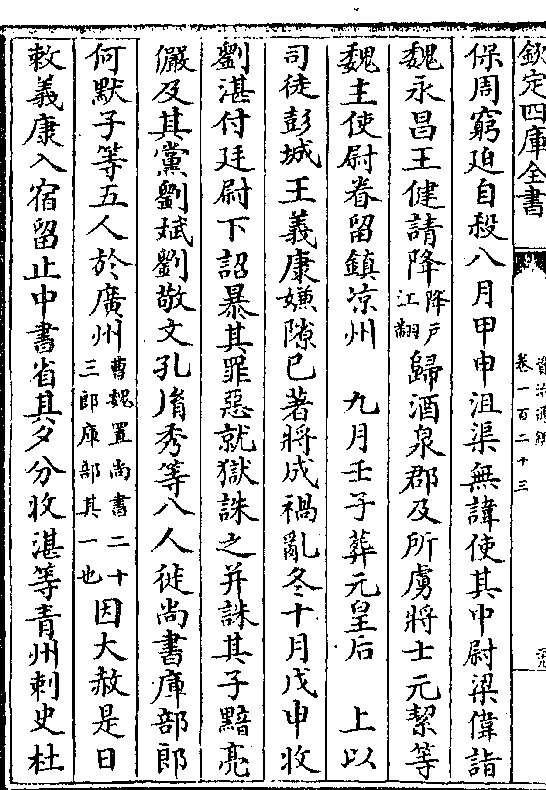 欽定四庫全書
資治通鑑
卷一百二十三
保周窮迫自殺八月甲申沮渠無諱使其中尉梁偉詣
魏永昌王健請降降戶江翻歸酒泉郡及所虜將士元絜等
魏主使尉眷留鎮凉州　九月壬子葬元皇后　上以
司徒彭城王義康嫌隙已著將成禍亂冬十月戊申收
劉湛付廷尉下詔暴其罪惡就獄誅之并誅其子黯亮
儼及其黨劉斌劉敬文孔胤秀等八人徙尚書庫部郎
何默子等五人於廣州曹魏置尚書二十三郎庫部其一也因大赦是日
敕義康入宿留止中書省其夕分收湛等青州刺史杜